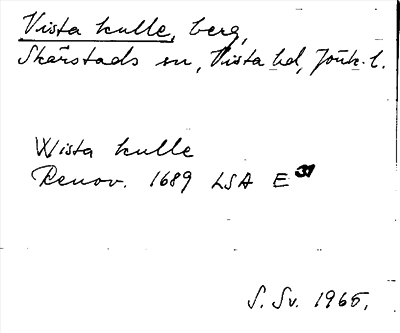 Vista kulle, berg,
Skärstads sn, Vista hd, Jönk. l.
Wista kulle
Renov. 1689 LSA E 31
S. Sv. 1965.